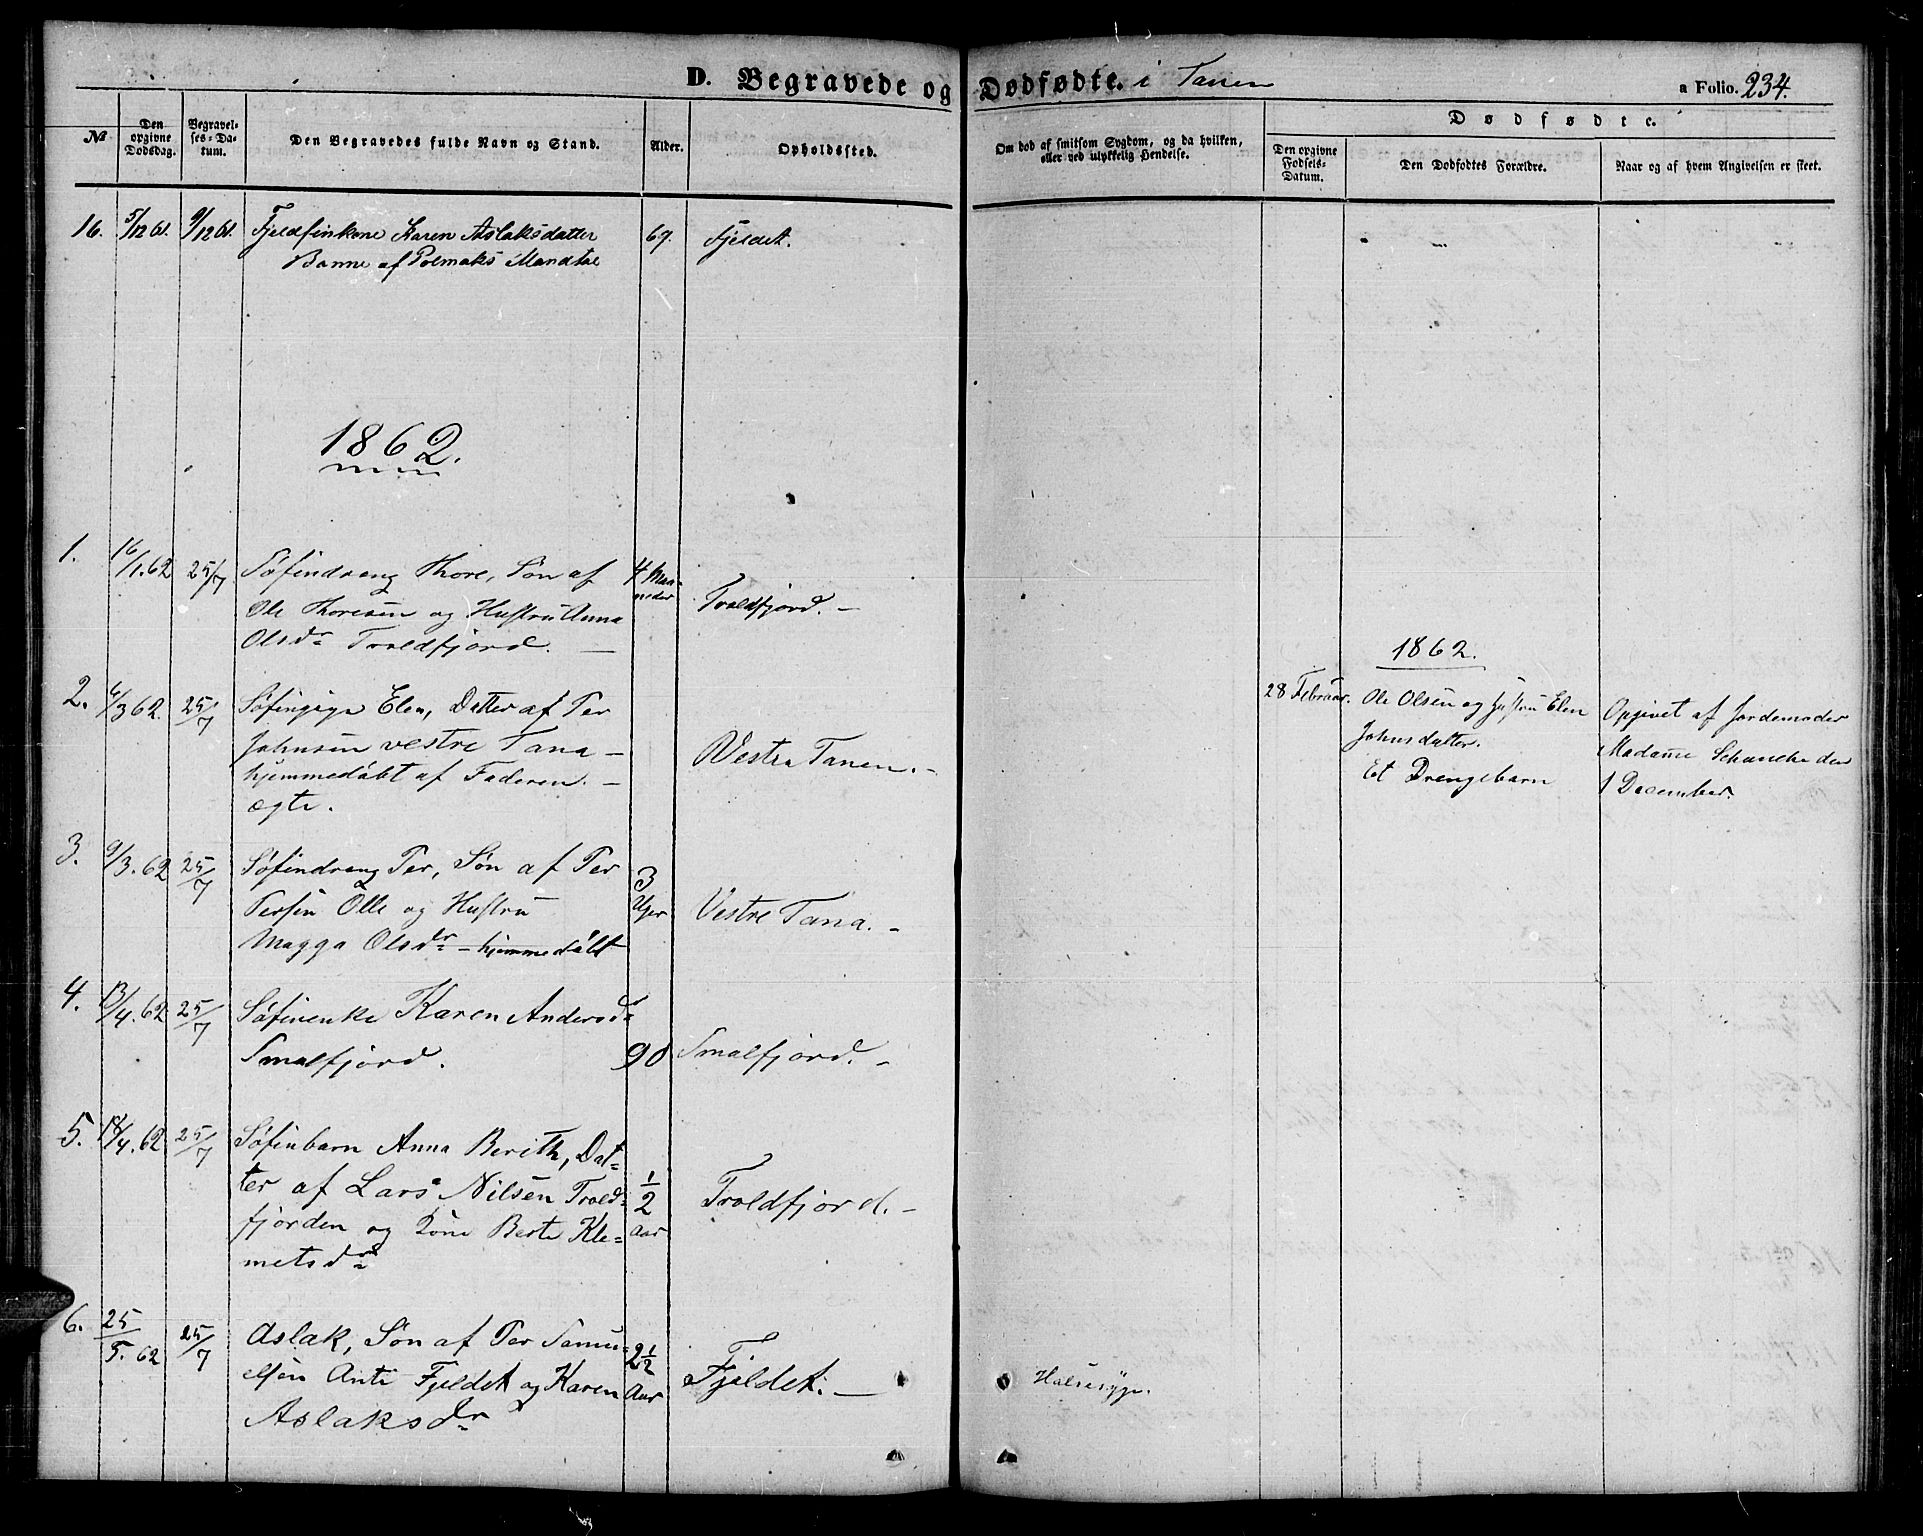 D. Begravede og Dødfødte. i Tanen
a Folio. 234.
№
Den opgivne Dødsdag.
Begravelses-Datum.
Den Begravedes fulde Navn og Stand.
Alder.
Opholdssted.
Om død af smitsom Sygdom, og da hvilken, eller ved ulykkelig Hendelse.
Dødfødte.
Den opgivne Fødsels-Datum.
Den Dødfødtes Forældre.
Naar og af hvem Angivelsen er skeet.
16. 5/12 61. 9/12 61. Fjeldfinkone Karen Aslaksdatter 69. Fjeldet.
Banne af Polmaks Mandtal
1862.
1. 16/1. 62 25/7 Søfindreng Thore, Søn af 4 Maa-
neder
Ole Thoresen og Hustru Anna Troldfjord. –
Olsdr Troldfjord. –
2. 4/3 62. 25/7 Søfinpige Elen, Datter af Per
Johnsen vestre Tana – Vestre Tanen. –
hjemmedøbt af Faderen. –
ægte.
3. 9/3. 62 25/7 Søfindreng Per, Søn af Per 3
Uger
Persen Olle og Hustru Vestre Tana. –
Magga Olsdr – hjemmedøbt
4. 13/4. 62 25/7 Søfinenke Karen Andersd
Smalfjord. 90 Smalfjord. –
5. 18/4. 62 25/7 Søfinbarn Anna Berith, Dat=
ter af Lars Nilsen Trold= 1/2 Troldfjord. –
fjorden og Kone Berte Kle= Aar
metsdr
6. 25/5. 62 25/7 Aslak, Søn af Per Samu=
elsen Anti Fjeldet og Karen 2 1/2 Aar Fjeldet. – Halssyge.
Aslaksdr
1862.
28 Februar. Ole Olsen og Hustru Elen
Johnsdatter.
Et Drengebarn
Opgivet af Jordemoder
Madame Schanche den
1 December.